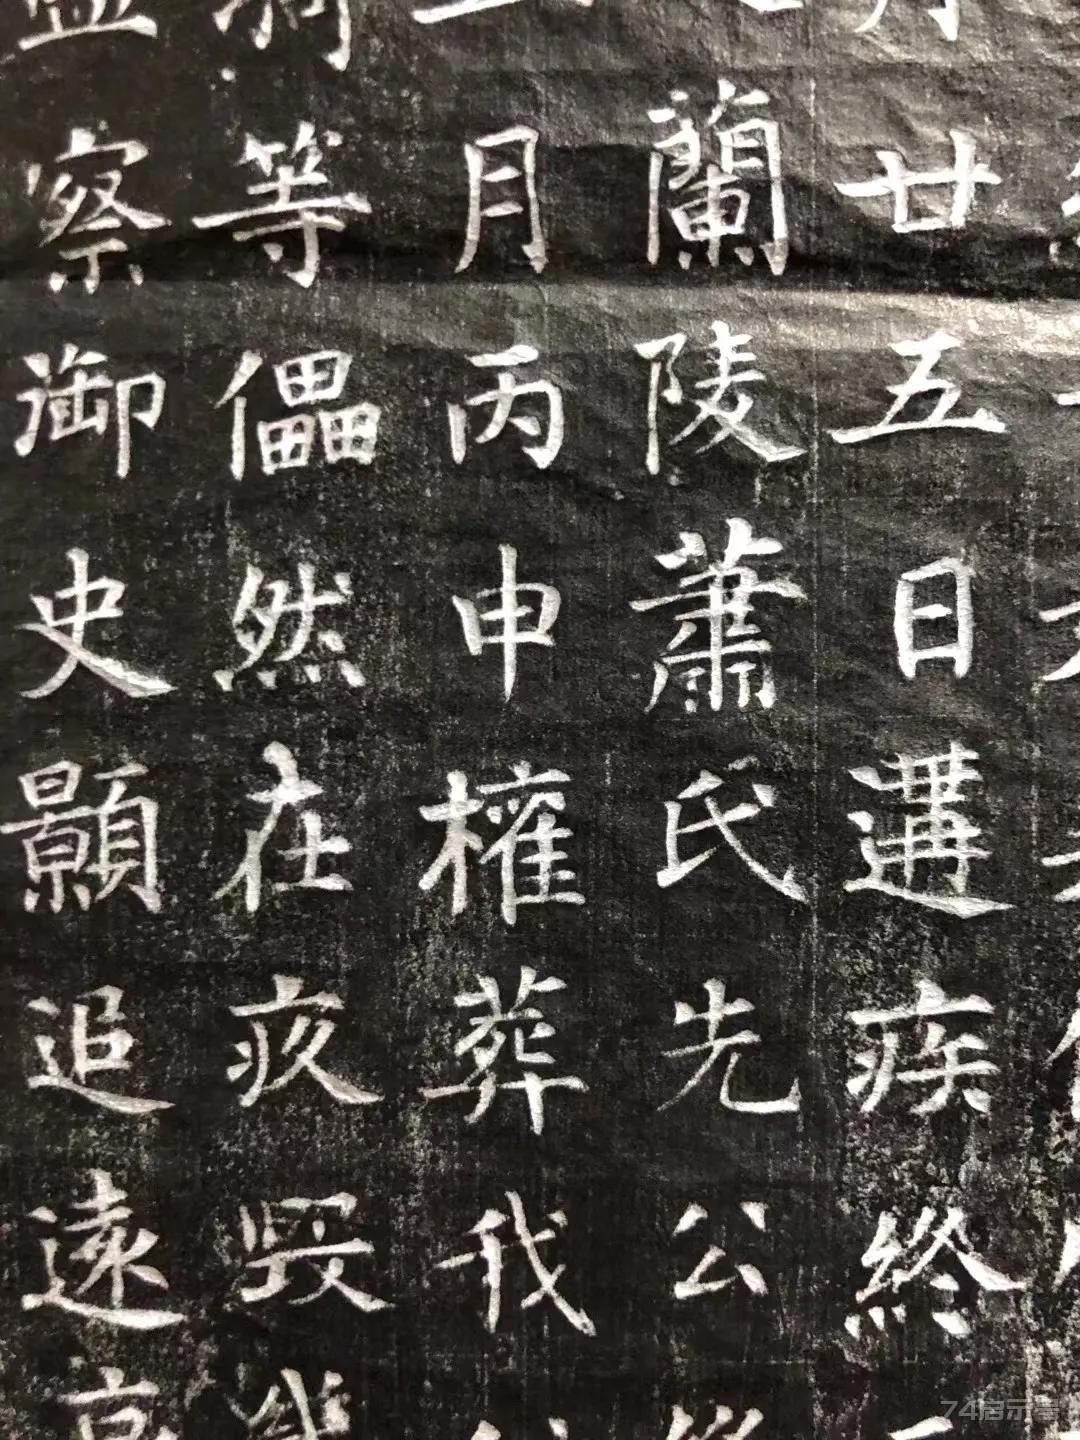 廿五日遘疾終
蘭陵蕭氏先公
月丙申權葬我
等儡然在疚毀
察御史顥追遠